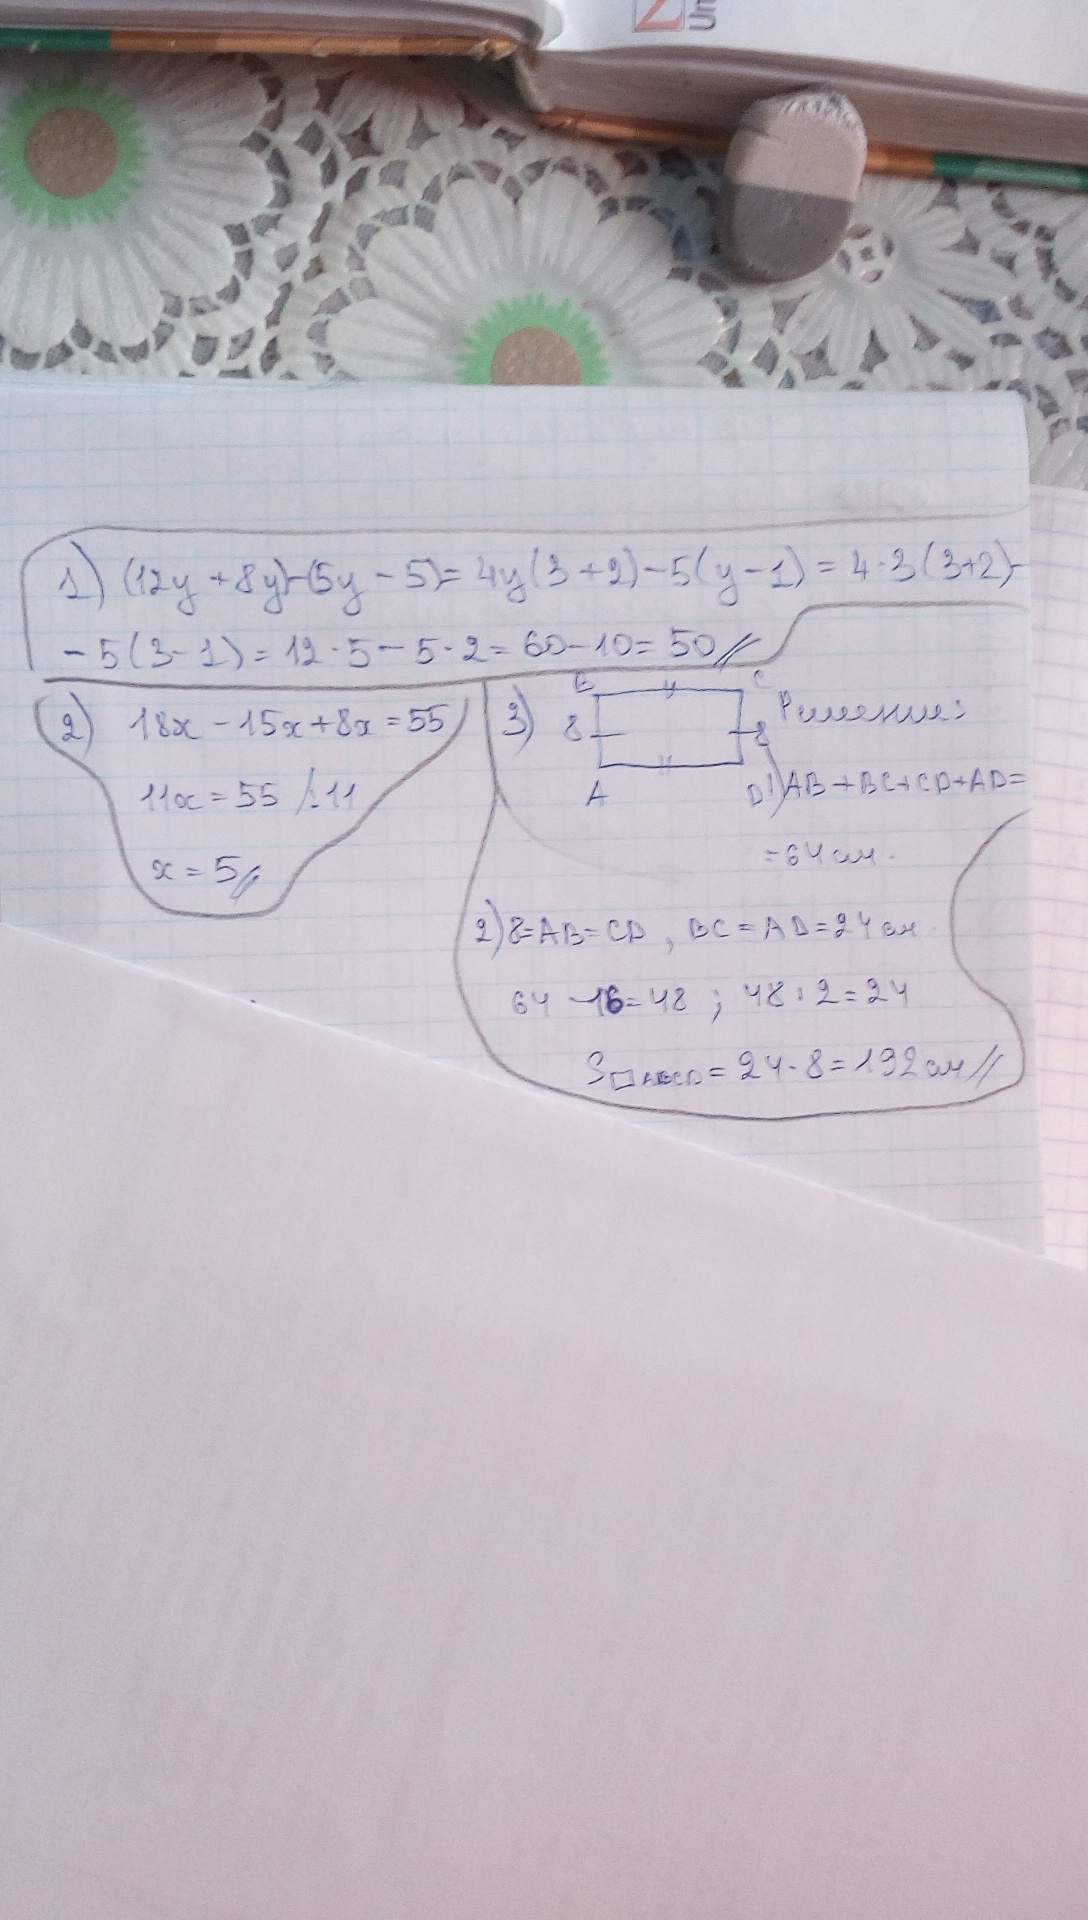 Un
1) (12y + 8y)-(5y - 5)= 4y(3+2)-5(y-1)= 4·3(3+2)-
- 5(3-1)= 12·5-5·2= 60-10= 50//
2) 18x - 15x+8x=55
11x=55 /:11
x=5//
3) B C
8 8
A D
Решение:
1) AB+BC+CD+AD=
=64см.
2) 8=AB=CD, BC=AD=24см.
64-16=48; 48:2=24
S□ABCD=24·8=192см//